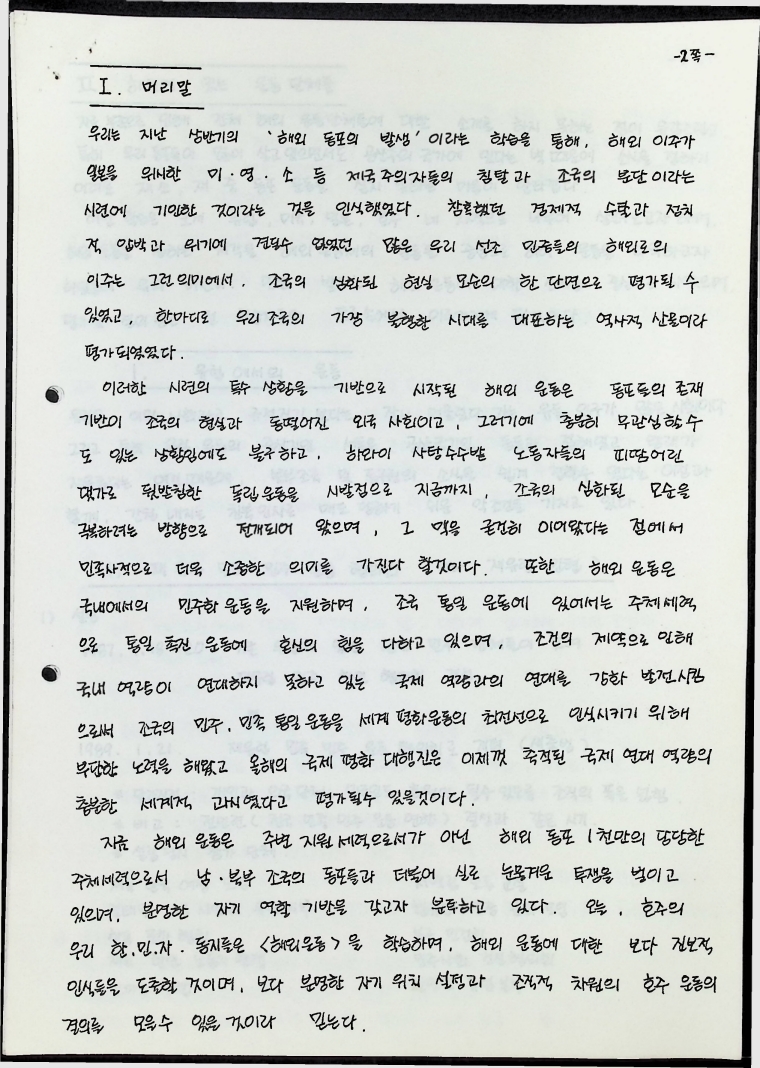 -2쪽-
I. 머리말
우리는 지난 상반기의 '해외 동포의 발생' 이라는 학습을 통해, 해외 이주가
일본을 위시한 미·영·소 등 제국주의자들의 침탈과 조국의 분단이라는
시련에 기인한 것이라는 것을 인식했었다. 참혹했던 경제적 수탈과 정치
적 압박과 위기에 견딜수 없었던 많은 우리 선조 민중들의 해외로의
이주는 그런 의미에서, 조국의 심화된 현실 모순의 한 단면으로 평가될 수
있었고, 한마디로 우리 조국의 가장 불행한 시대를 대표하는 역사적 산물이라
평가되었었다.
이러한 시련의 특수 상황을 기반으로 시작된 해외 운동은 동포들의 존재
기반이 조국의 현실과 동떨어진 외국 사회이고, 그러기에 충분히 무관심할 수
도 있는 상황임에도 불구하고, 하와이 사탕수수밭 노동자들의 피땀어린
댓가로 뒷받침한 독립운동을 시발점으로 지금까지, 조국의 심화된 모순을
극복하려는 방향으로 전개되어 왔으며, 그 맥을 굳건히 이어왔다는 점에서
민족사적으로 더욱 소중한 의미를 가진다 할것이다. 또한 해외 운동은
국내에서의 민주화 운동을 지원하며, 조국 통일 운동에 있어서는 주체세력
으로 통일 촉진 운동에 혼신의 힘을 다하고 있으며, 조건의 제약으로 인해
국내 역량이 연대하지 못하고 있는 국제 역량과의 연대를 강화 발전시킴
으로서 조국의 민주, 민족 통일 운동을 세계 평화운동의 최전선으로 인식시키기 위해
부단한 노력을 해왔고 올해의 국제 평화 대행진은 이제껏 축적된 국제 연대 역량의
충분한 세계적 과시였다고 평가될수 있을것이다.
지금 해외 운동은 주변 지원 세력으로서가 아닌 해외 동포 1천만의 당당한
주체세력으로서 남·북부 조국의 동포들과 더불어 실로 눈물겨운 투쟁을 벌이고
있으며, 분명한 자기 역할 기반을 갖고자 분투하고 있다. 오늘, 호주의
우리 한.민.자. 동지들은 <해외운동>을 학습하며, 해외 운동에 대한 보다 진보적
인식들을 도출할 것이며, 보다 분명한 자기 위치 설정과 조직적 차원의 호주 운동의
결의를 모을수 있을 것이라 믿는다.